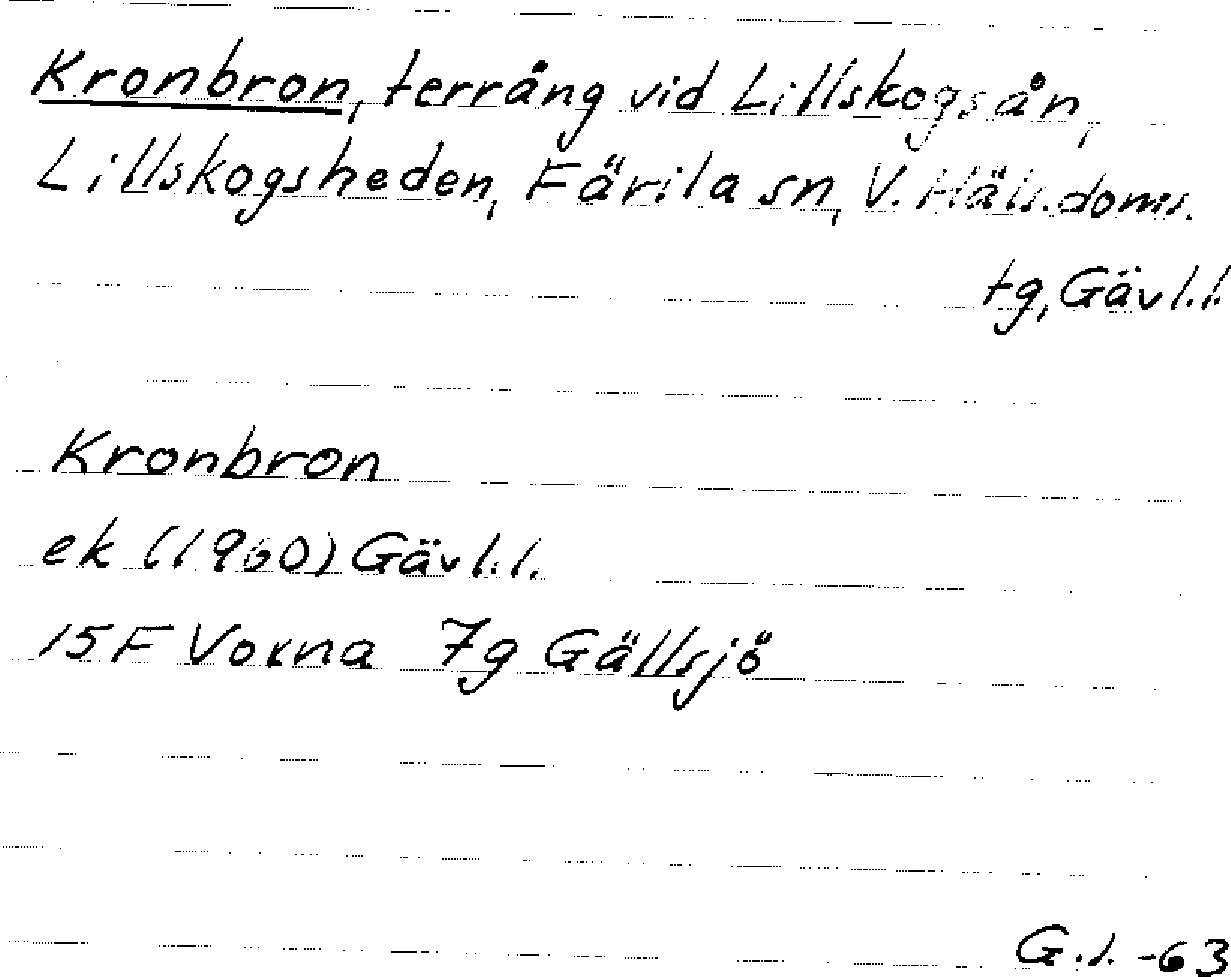 Kronbron, terräng vid Lillskogsån,
Lillskogsheden, Färila sn, V. Häls. doms.
tg, Gävl.l.
Kronbron
ek (1960) Gävl.l.
15F Voxna 7g Gällsjö
G.l. -63